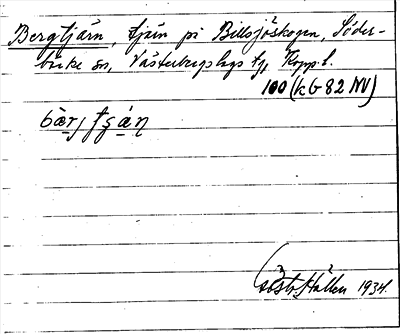 Bergtjärn, tjärn på Billsjöskogen, Söder-
bärke sn, Västerbergslags tg, Kopp. l.
100 (kG 82 NV)
bærj
Hållen 1934.